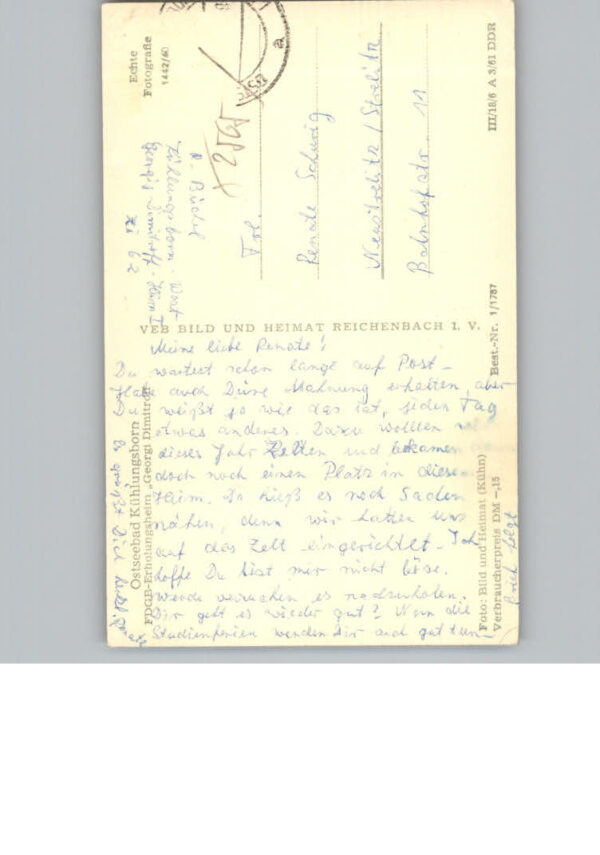 Echte
Fotografie
1442/60
III/18/6 A 3/61 DDR
Zi 62
Frl.
Renate
Neustrelitz / Strelitz
Bahnhofstr. 11
VEB BILD UND HEIMAT REICHENBACH I. V.
Best.-Nr. 1/1787
Meine liebe Renate!
Du wartest schon lange auf Post –
Habe auch Deine Mahnung erhalten, aber
Du weißt ja wie das ist, jeden Tag
etwas anderes. Dazu wollten
dieses Jahr Zelten und bekamen
doch noch einen Platz in diesem
Heim. Da hieß es noch Sachen
nähen, denn wir hatten uns
auf das Zelt eingerichtet. Ich
hoffe Du bist mir nicht böse.
werde versuchen es nachzuholen.
Dir geht es wieder gut? Nun die
Studienferien werden Dir auch gut tun –
Es grüßt Dich herzl.
Brief folgt
Ostseebad Kühlungsborn
FDGB-Erholungsheim „Georgi Dimitroff"
Foto: Bild und Heimat (Kühn)
Verbraucherpreis DM –,15